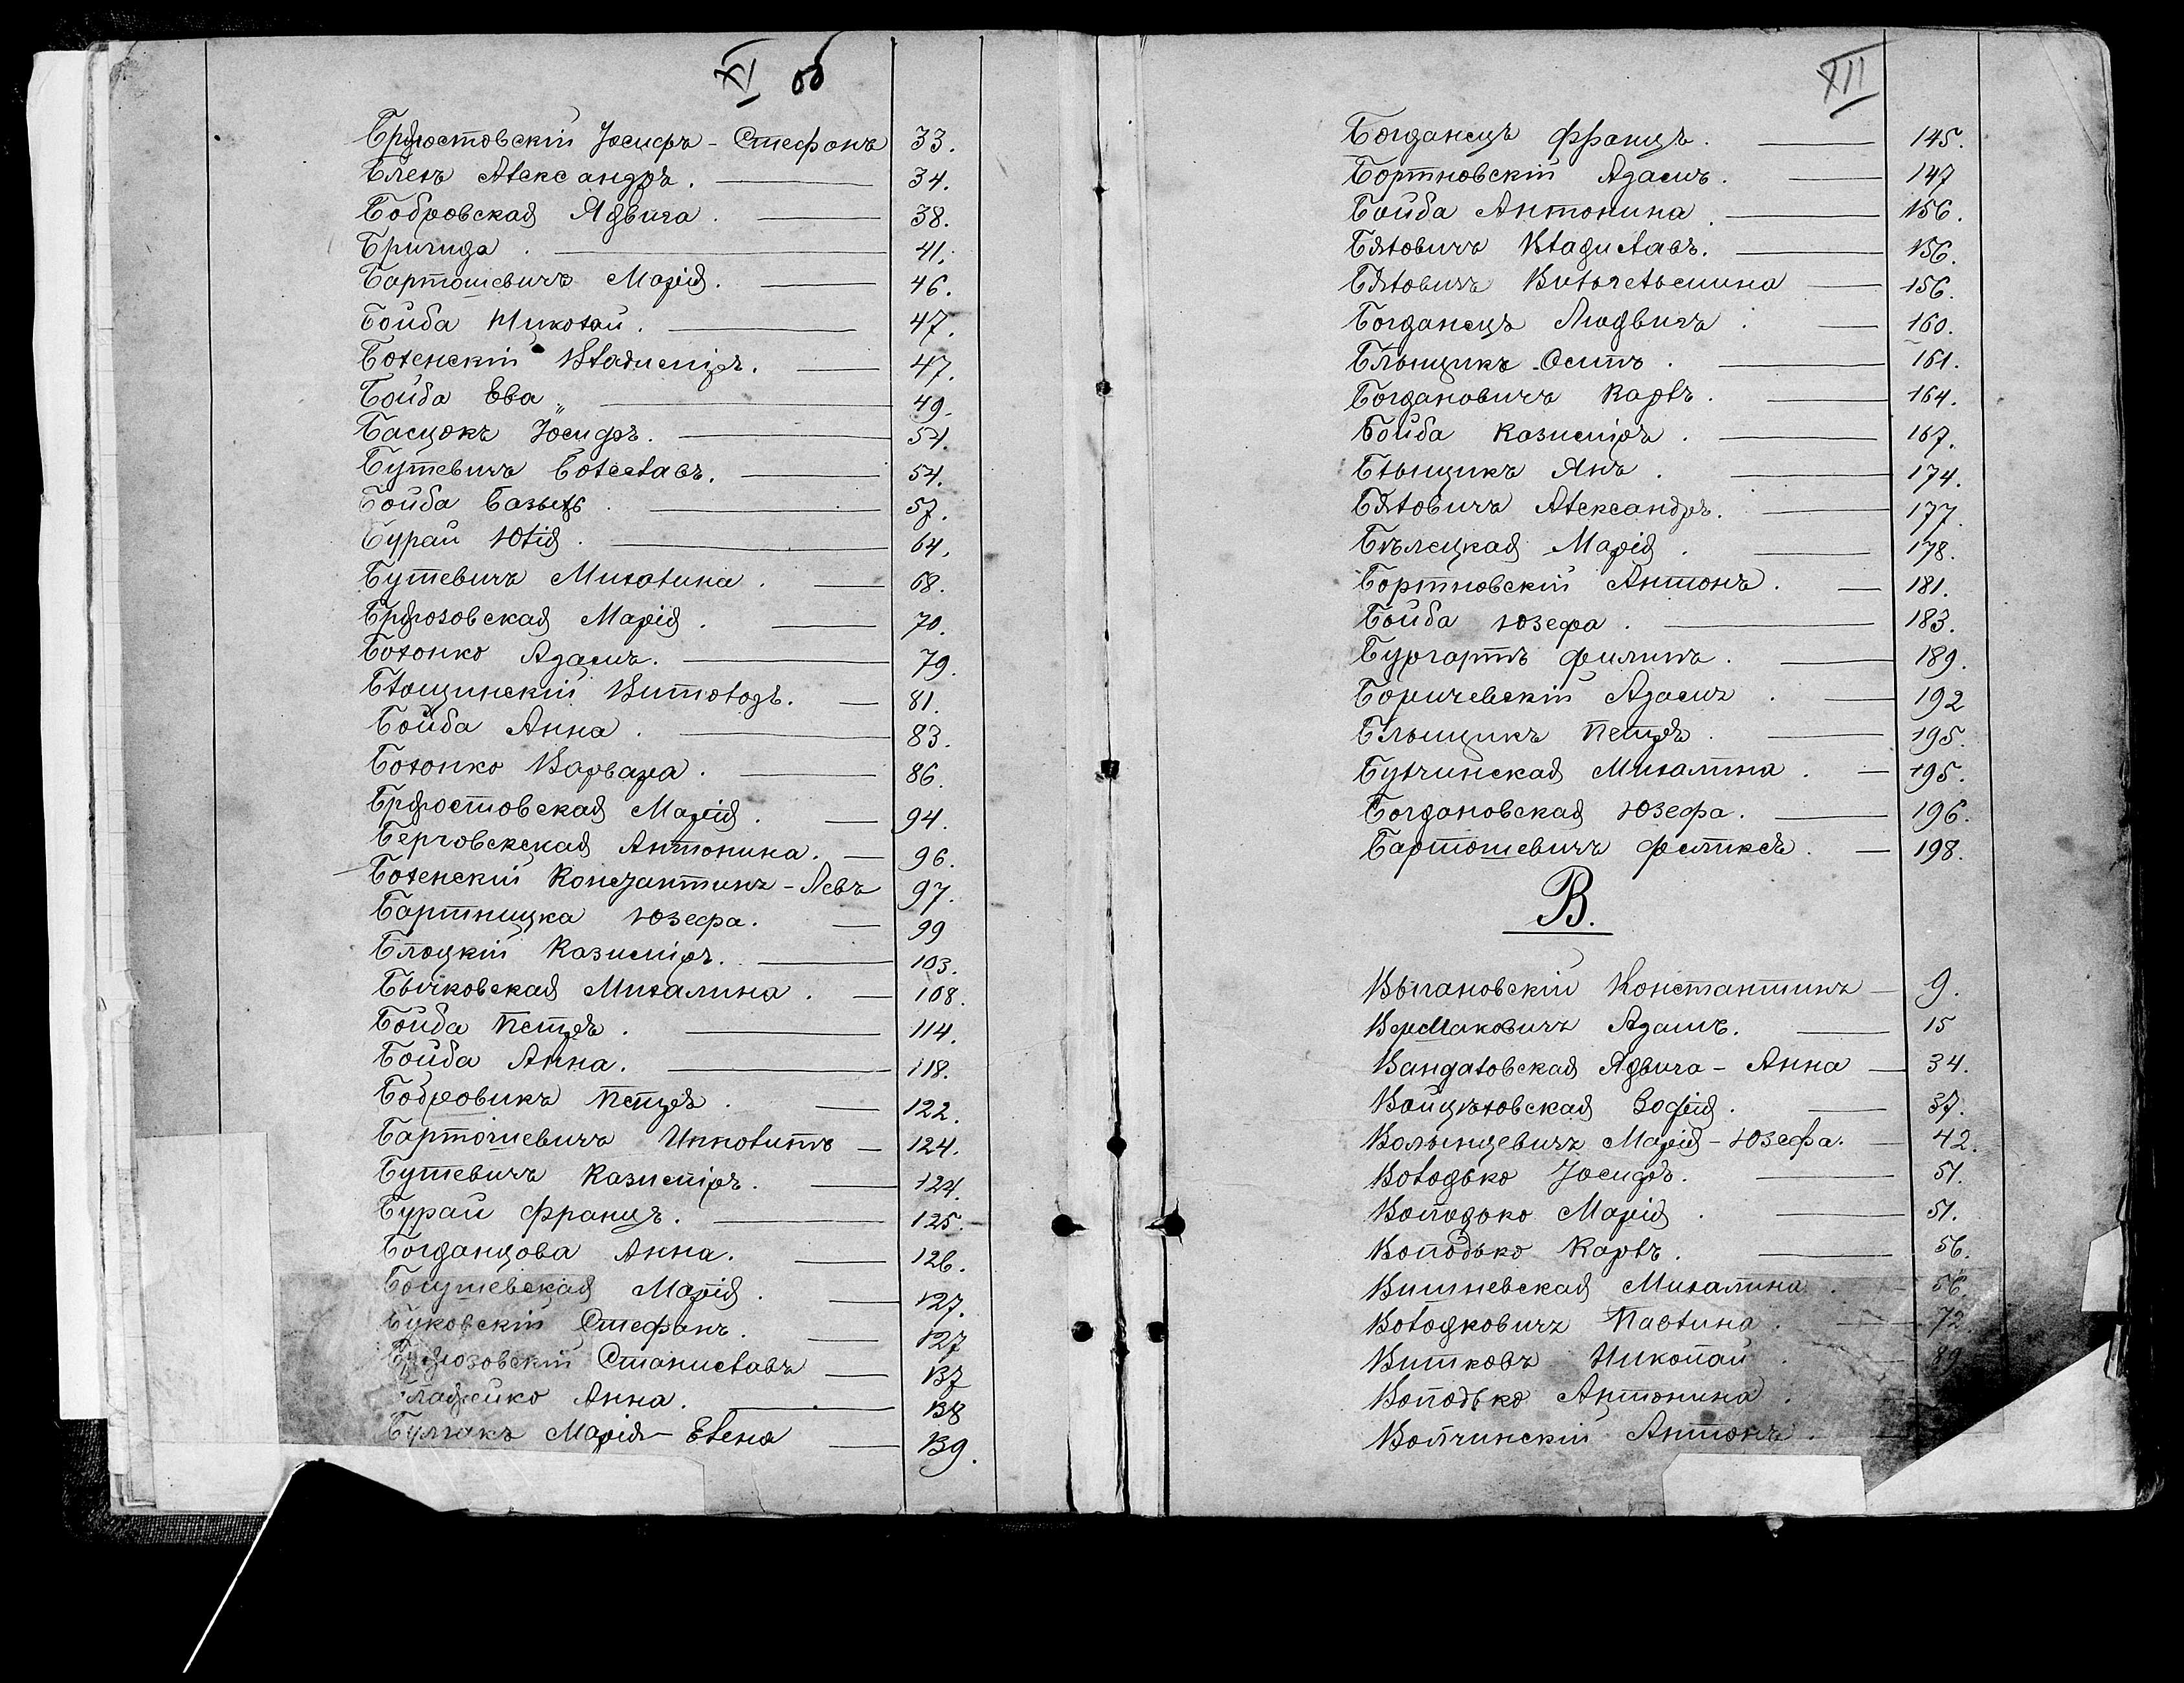 XI об
Бржостовскій Іосифъ - Стефанъ 33.
Блехъ Александръ. 34.
Бобровская Ядвига. 38.
Бригида. 41.
Бартошевичъ Марія. 46.
Бойба Николай. 47.
Боленскій Владиміръ. 47.
Бойба Ева 49.
Басцокъ Іосифъ. 54.
Бутевичъ Болеславъ. 54.
Бойба Базыль. 57.
Бурай Юлія. 64.
Бутевичъ Михалина. 68.
Бржозовская Марія. 70.
Болонко Адамъ. 79.
Блощинскій Витольдъ. 81.
Бойба Анна. 83.
Болонко Варвара. 86.
Бржостовская Марія. 94.
Антонина. 96.
Боленскій Константинъ - Левъ 97.
Бартницка Юзефа. 99
Блоцкій Казиміръ. 103.
Бычковская Михалина. 108.
Бойба Петръ. 114.
Бойба Анна. 118.
Бобровикъ Петръ. 122.
Бартошевичъ Инколитъ 124.
Бутевичъ Казиміръ. 124.
Бурай Францъ. 125.
Богданцова Анна. 126.
Богушевская Марія. 127.
Буковскій Стефанъ. 127
Бржозовскій Станиславъ 137
Анна. 138
Булгакъ Марія - Елена 139.
XII
Богданецъ Францъ. 145.
Бортновскій Адамъ. 147
Бойба Антонина. 156.
Бяловичъ Владиславъ. 156.
Бяловичъ Вильгельмина 156.
Богданецъ Людвигъ. 160.
Блыщикъ Осипъ. 161.
Богдановичъ Карлъ. 164.
Бойба Казиміръ. 167.
Блыщикъ Янъ. 174.
Бялович Александръ. 177.
Бѣлецкая Марія. 178.
Бортновскій Антонъ. 181.
Бойба Юзефа. 183.
Бургартъ Филипъ. 189.
Боричевскій Адамъ. 192
Блыщикъ Петръ. 195.
Бутчинская Михалина. 195.
Богдановская Юзефа. 196.
Бартошевичъ Феликсъ. 198.
В.
Выгановскій Константинъ 9.
Вермаковичъ Адамъ. 15
Вандаловская Ядвига - Анна 34.
Войцѣховская Зофія. 37.
Волынцевичъ Марія - Юзефа. 42.
Володько Іосифъ. 51.
Володько Марія. 51.
Володько Карлъ. 56.
Вишневская Михалина. 56.
Володковичъ Павлина. 72.
Витковъ Николай 89
Володько Антонина.
Волчинскій Антонъ.